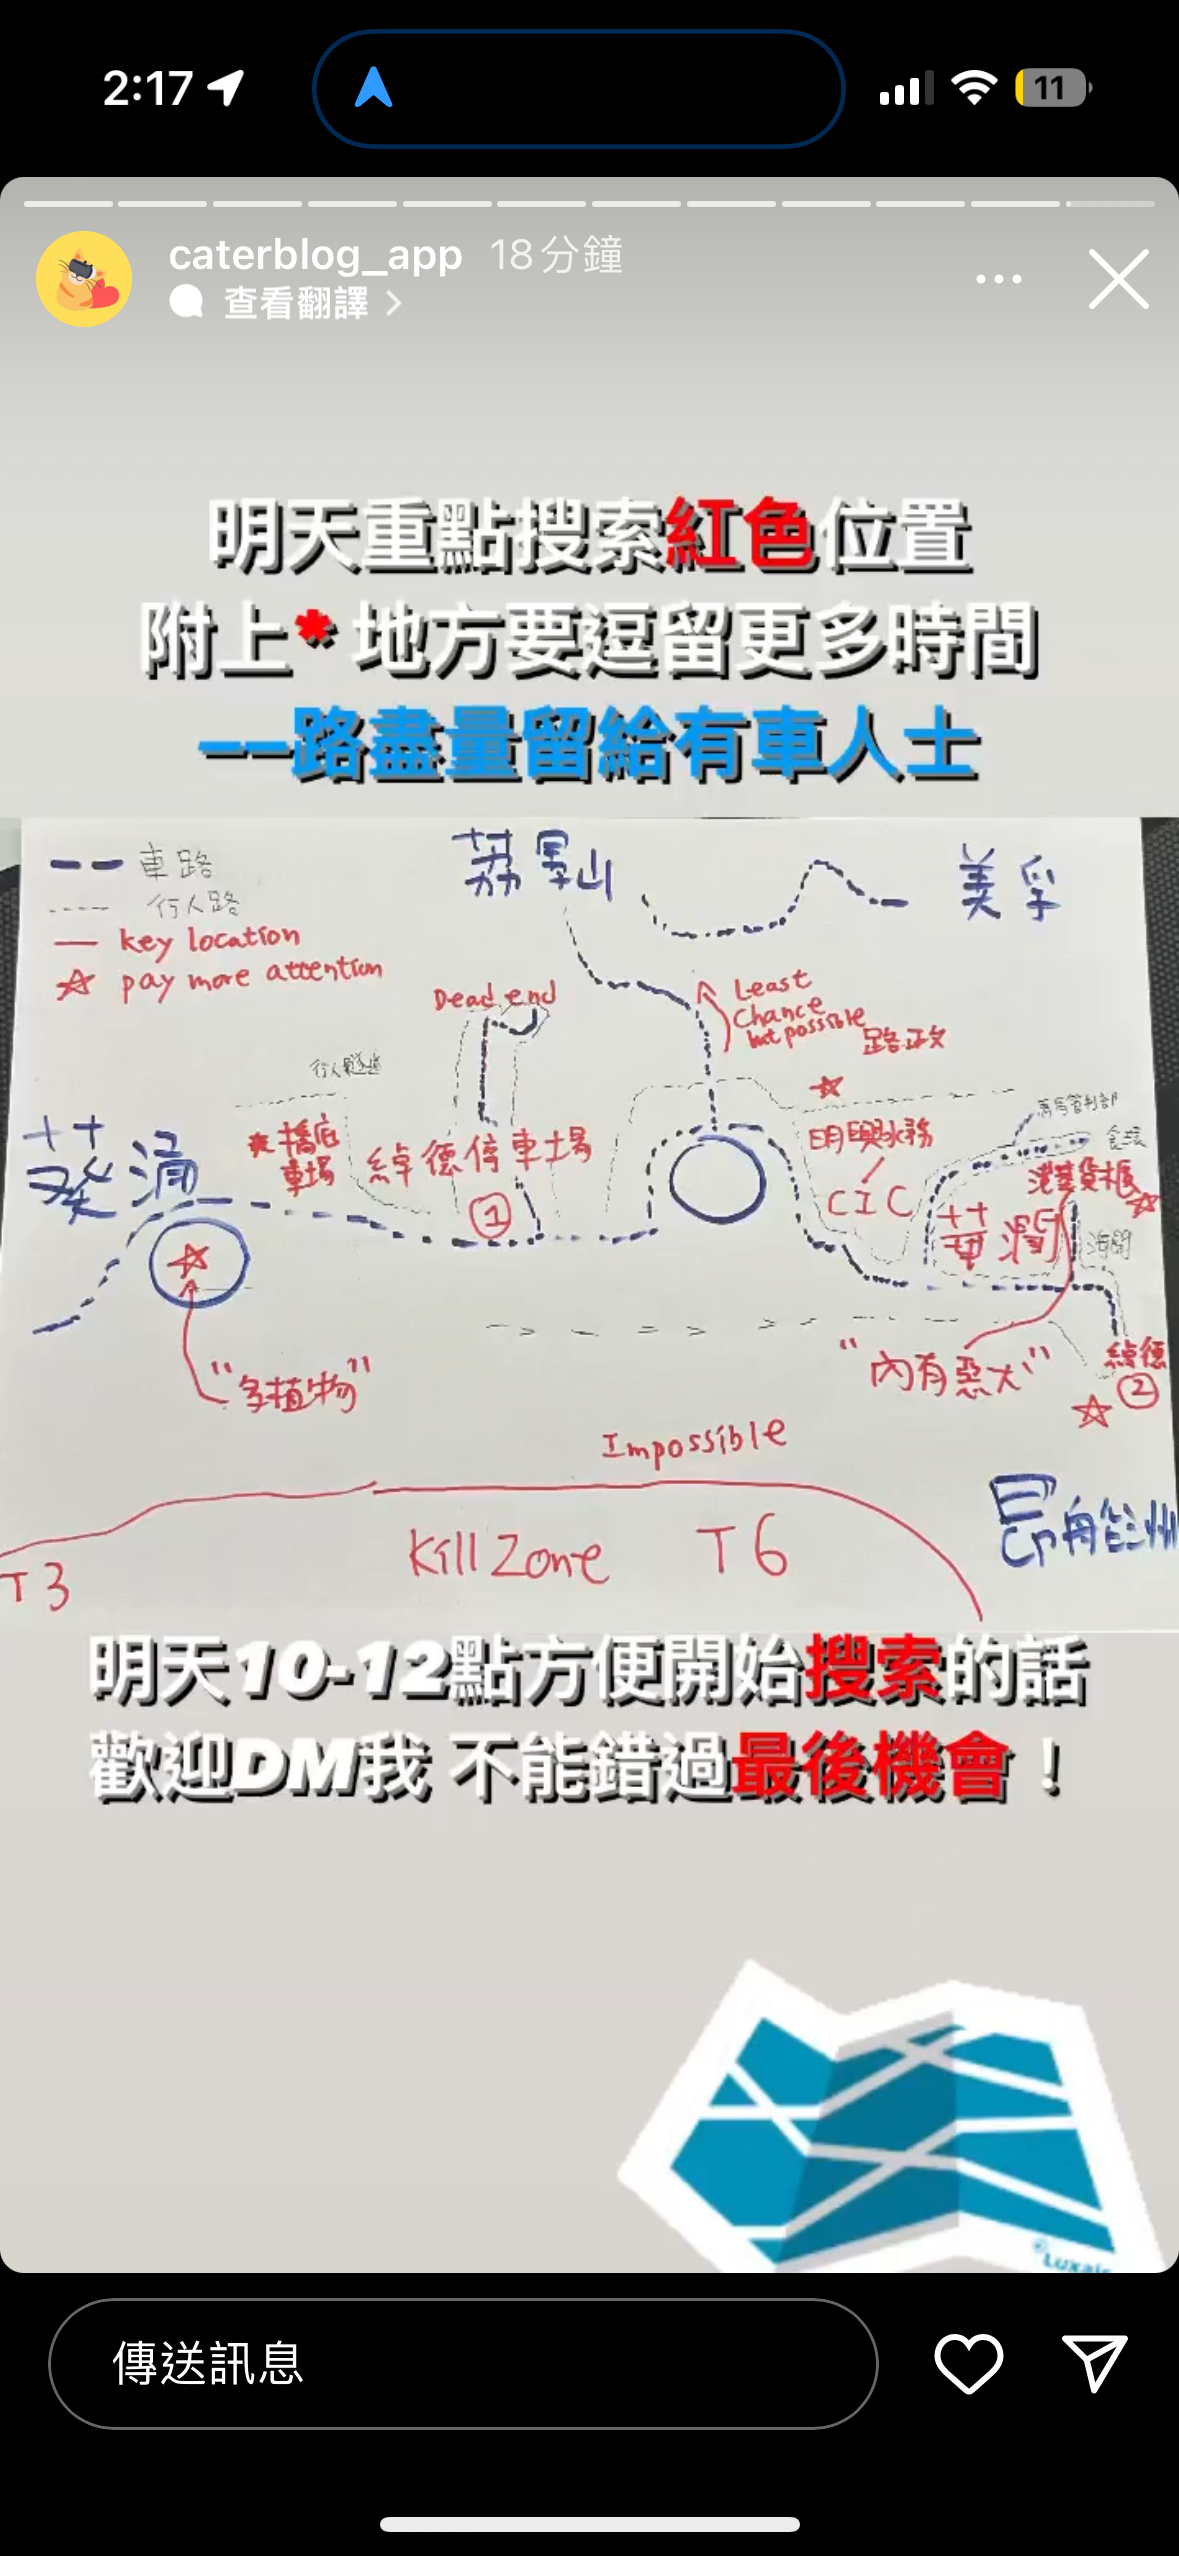 2:17
11
caterblog_app 18分鐘
查看翻譯
明天重點搜索紅色位置
附上* 地方要逗留更多時間
--路盡量留給有車人士
車路
行人路
key location
pay more attention
荔景山
美孚
Dead end
Least
Chance
but possible
路政
行人隧道
葵涌
橋底
車場
綽德停車場
①
明興水務
CIC
港基貨櫃
華潤
海關
"多植物"
"內有惡犬"
綽德
②
Impossible
Kill Zone
T6
T3
昂船洲
明天10-12點方便開始搜索的話
歡迎DM我 不能錯過最後機會！
傳送訊息